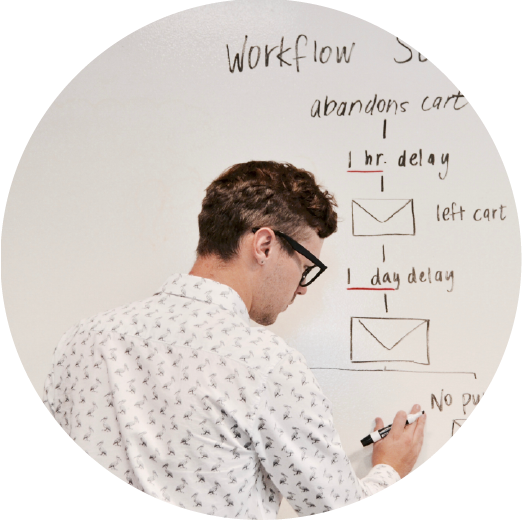 Workflow
abandons cart
1 hr. delay
left cart
1 day delay
No